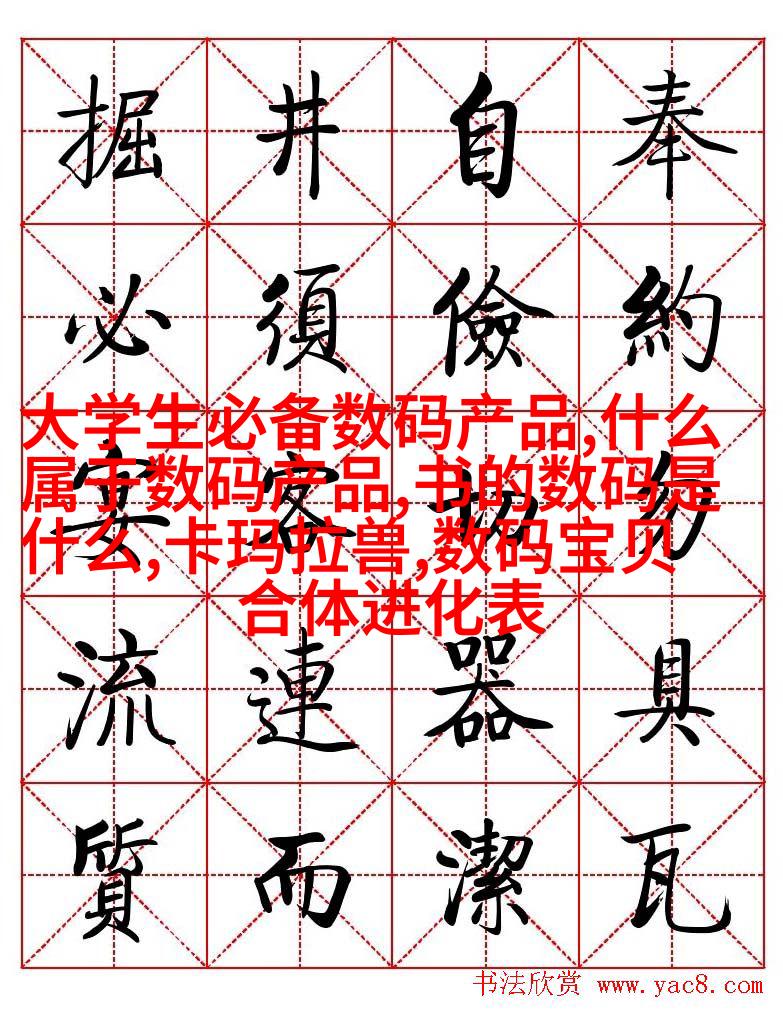 掘井自奉
必須儉約
宴客切勿
大学生必备数码产品,什么
属于数码产品,书的数码是
什么,卡玛拉兽,数码宝贝
合体进化表
流連器具
質而潔瓦
书法欣赏 www.yac8.com